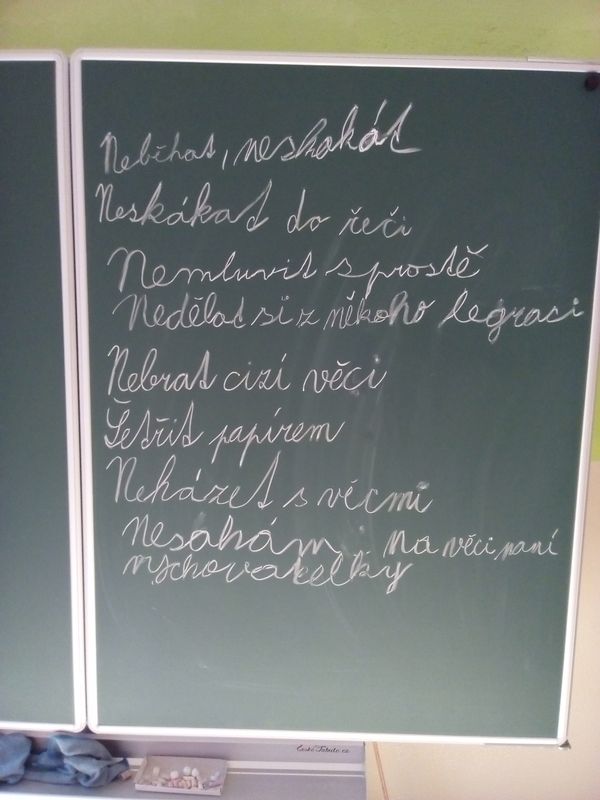 Neběhat, neskákat
Neskákat do řeči
Nemluvit sprostě
Nedělat si z někoho legraci
Nebrat cizí věci
Šetřit papírem
Neházet s věcmi
Nesahám na věci paní
vychovatelky
České Tabule.cz